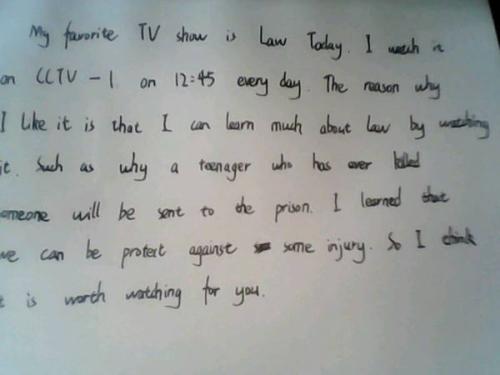 My favorite TV show is Law Today. I watch it
on CCTV-1 on 12:45 every day. The reason why
I like it is that I can learn much about law by watching
it. Such as why a teenager who has ever killed
someone will be sent to the prison. I learned that
we can be protect against some injury. So I think
it is worth watching for you.